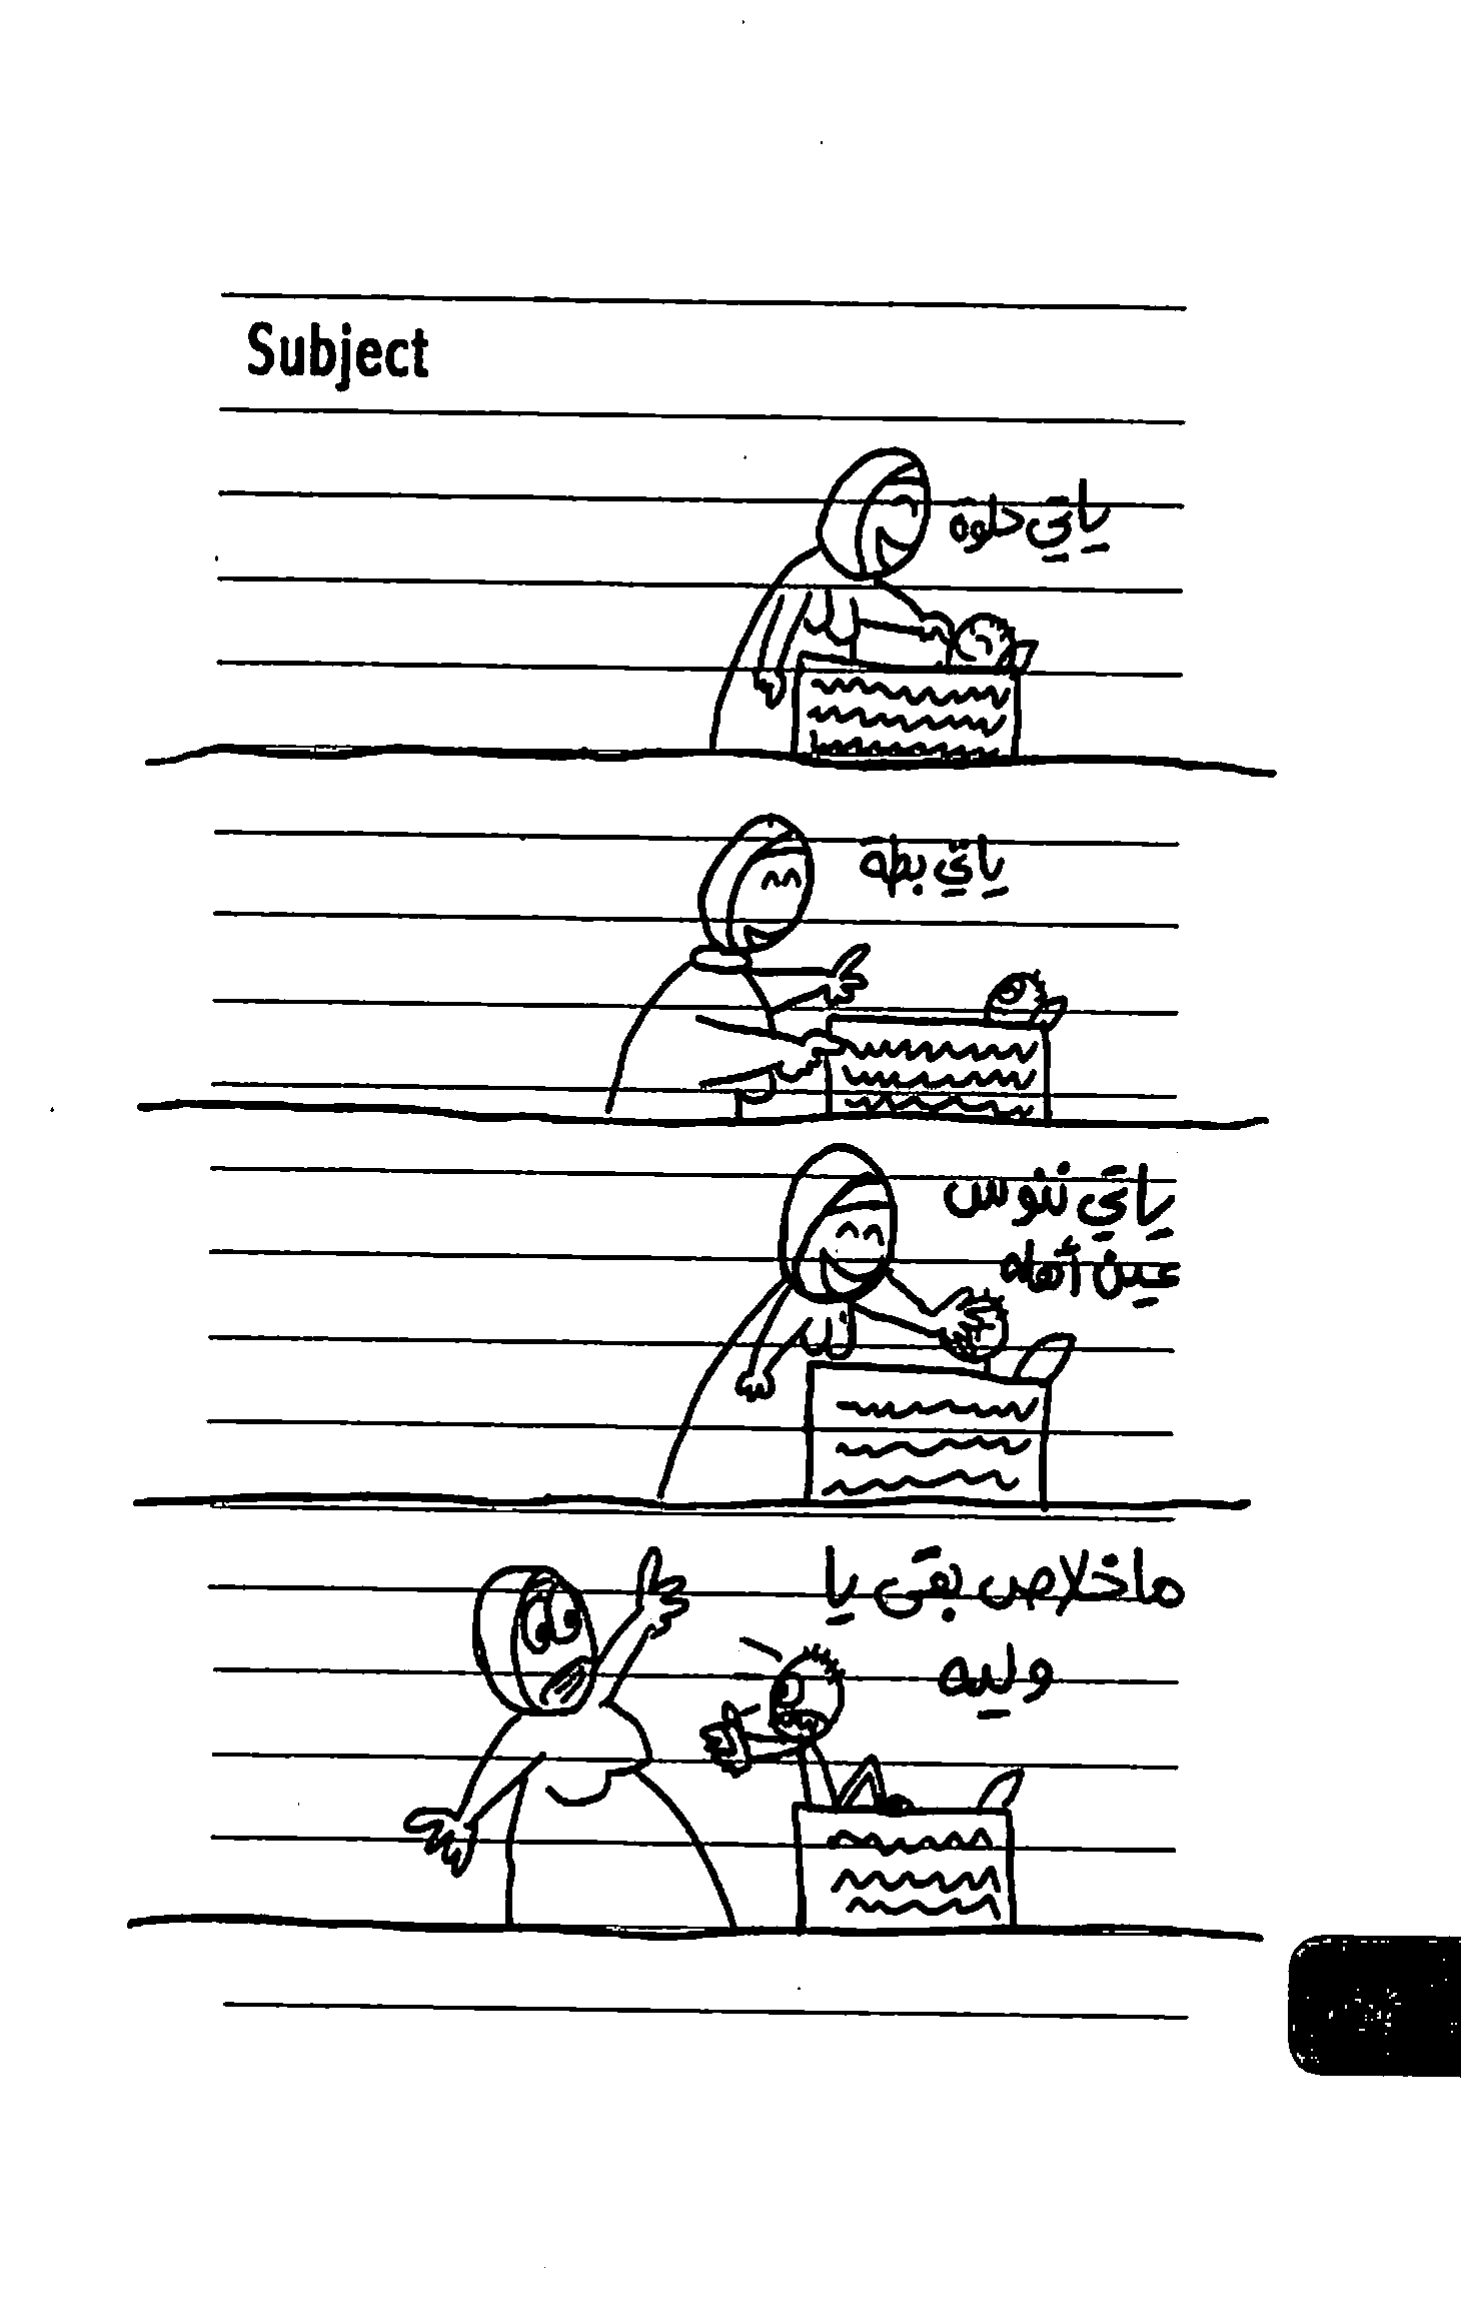 Subject
ياتي حلوه
ياتي بطه
ياتي ننوس
عين أهله
ما خلاص بقى يا
وليه